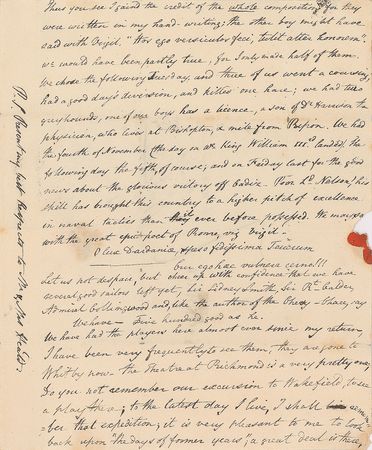 Thus you see I gain'd the credit of the whole composition for they
were written in my hand-writing; the other boy might have
said with Virgil. "Hos ego versiculos feci, tulit alter honorem".
we would have been partly true, for I only made half of them.
We chose the following Tuesday, and three of us went a coursing,
had a good day's diversion, and killed one hare; we had two
greyhounds, one of our boys has a licence, a son of Dr. Harrison the
physician, who lives at Bishopton, a mile from Ripon. We had
the fourth of November (the day on wch King William IIIrd landed) the
following day the fifth, of course; and on Friday last for the good
news about the glorious victory off Cadiz. Poor Ld. Nelson! his
skill has brought this country to a higher pitch of excellence
in naval tactics than it ever before possessed. We may say
with the great epic poet of Rome, viz Virgil.
O lux Dardaniæ, spes o fidissima Teucrum
cur ego hæc vulnera cerno!!!
Let us not despair, but chear up with confidence that we have
several good sailors left yet, Sir Sidney Smith, Sir Rt. Calder,
Admiral Collingwood and, like the author of the Chevy-Chace, say
We have Five hundred good as he.
We have had the players here almost ever since my return,
I have been very frequently to see them, they are gone to
Whitby now. The theatre at Richmond is a very pretty one,
Do you not remember our excursion to Wakefield, to see
a play there; to the latest day I live, I shall remem-
ber that expedition; it is very pleasant to me to look
back upon "the days of former years", a great deal is there,
P.S. Present my best Respects to Mr. & Mrs.